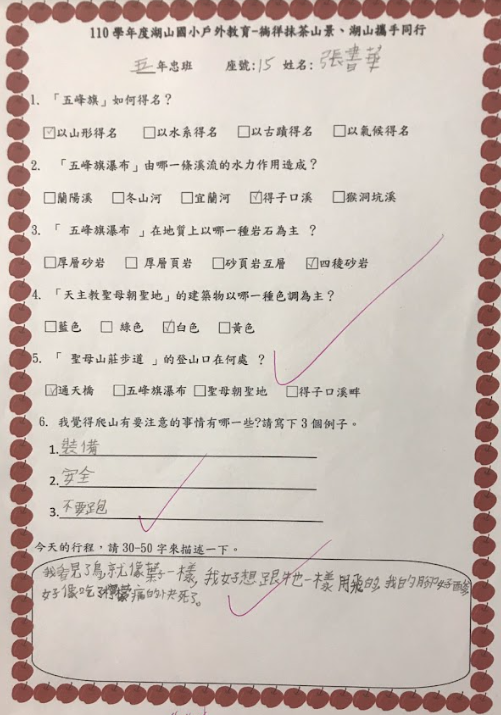 110 學年度湖山國小戶外教育-徜徉抹茶山景、湖山攜手同行
五年忠班 座號:15 姓名:張書華
1. 「五峰旗」如何得名？
☑以山形得名 □以水系得名 □以古蹟得名 □以氣候得名
2. 「五峰旗瀑布」由哪一條溪流的水力作用造成？
□蘭陽溪 □冬山河 □宜蘭河 ☑得子口溪 □猴洞坑溪
3. 「 五峰旗瀑布 」在地質上以哪一種岩石為主 ？
□厚層砂岩 □ 厚層頁岩 □砂頁岩互層 ☑四稜砂岩
4. 「天主教聖母朝聖地」的建築物以哪一種色調為主？
□藍色 □ 綠色 ☑白色 □黃色
5. 「 聖母山莊步道 」的登山口在何處 ？
☑通天橋 □五峰旗瀑布 □聖母朝聖地 □得子口溪畔
6. 我覺得爬山有要注意的事情有哪一些?請寫下 3 個例子。
1.裝備
2.安全
3.不要跑
今天的行程，請 30-50 字來描述一下。
我看見了鳥就像葉子一樣，我好想跟牠一樣用飛的，我的腳好酸
好像吃了檸檬痛的快死了。